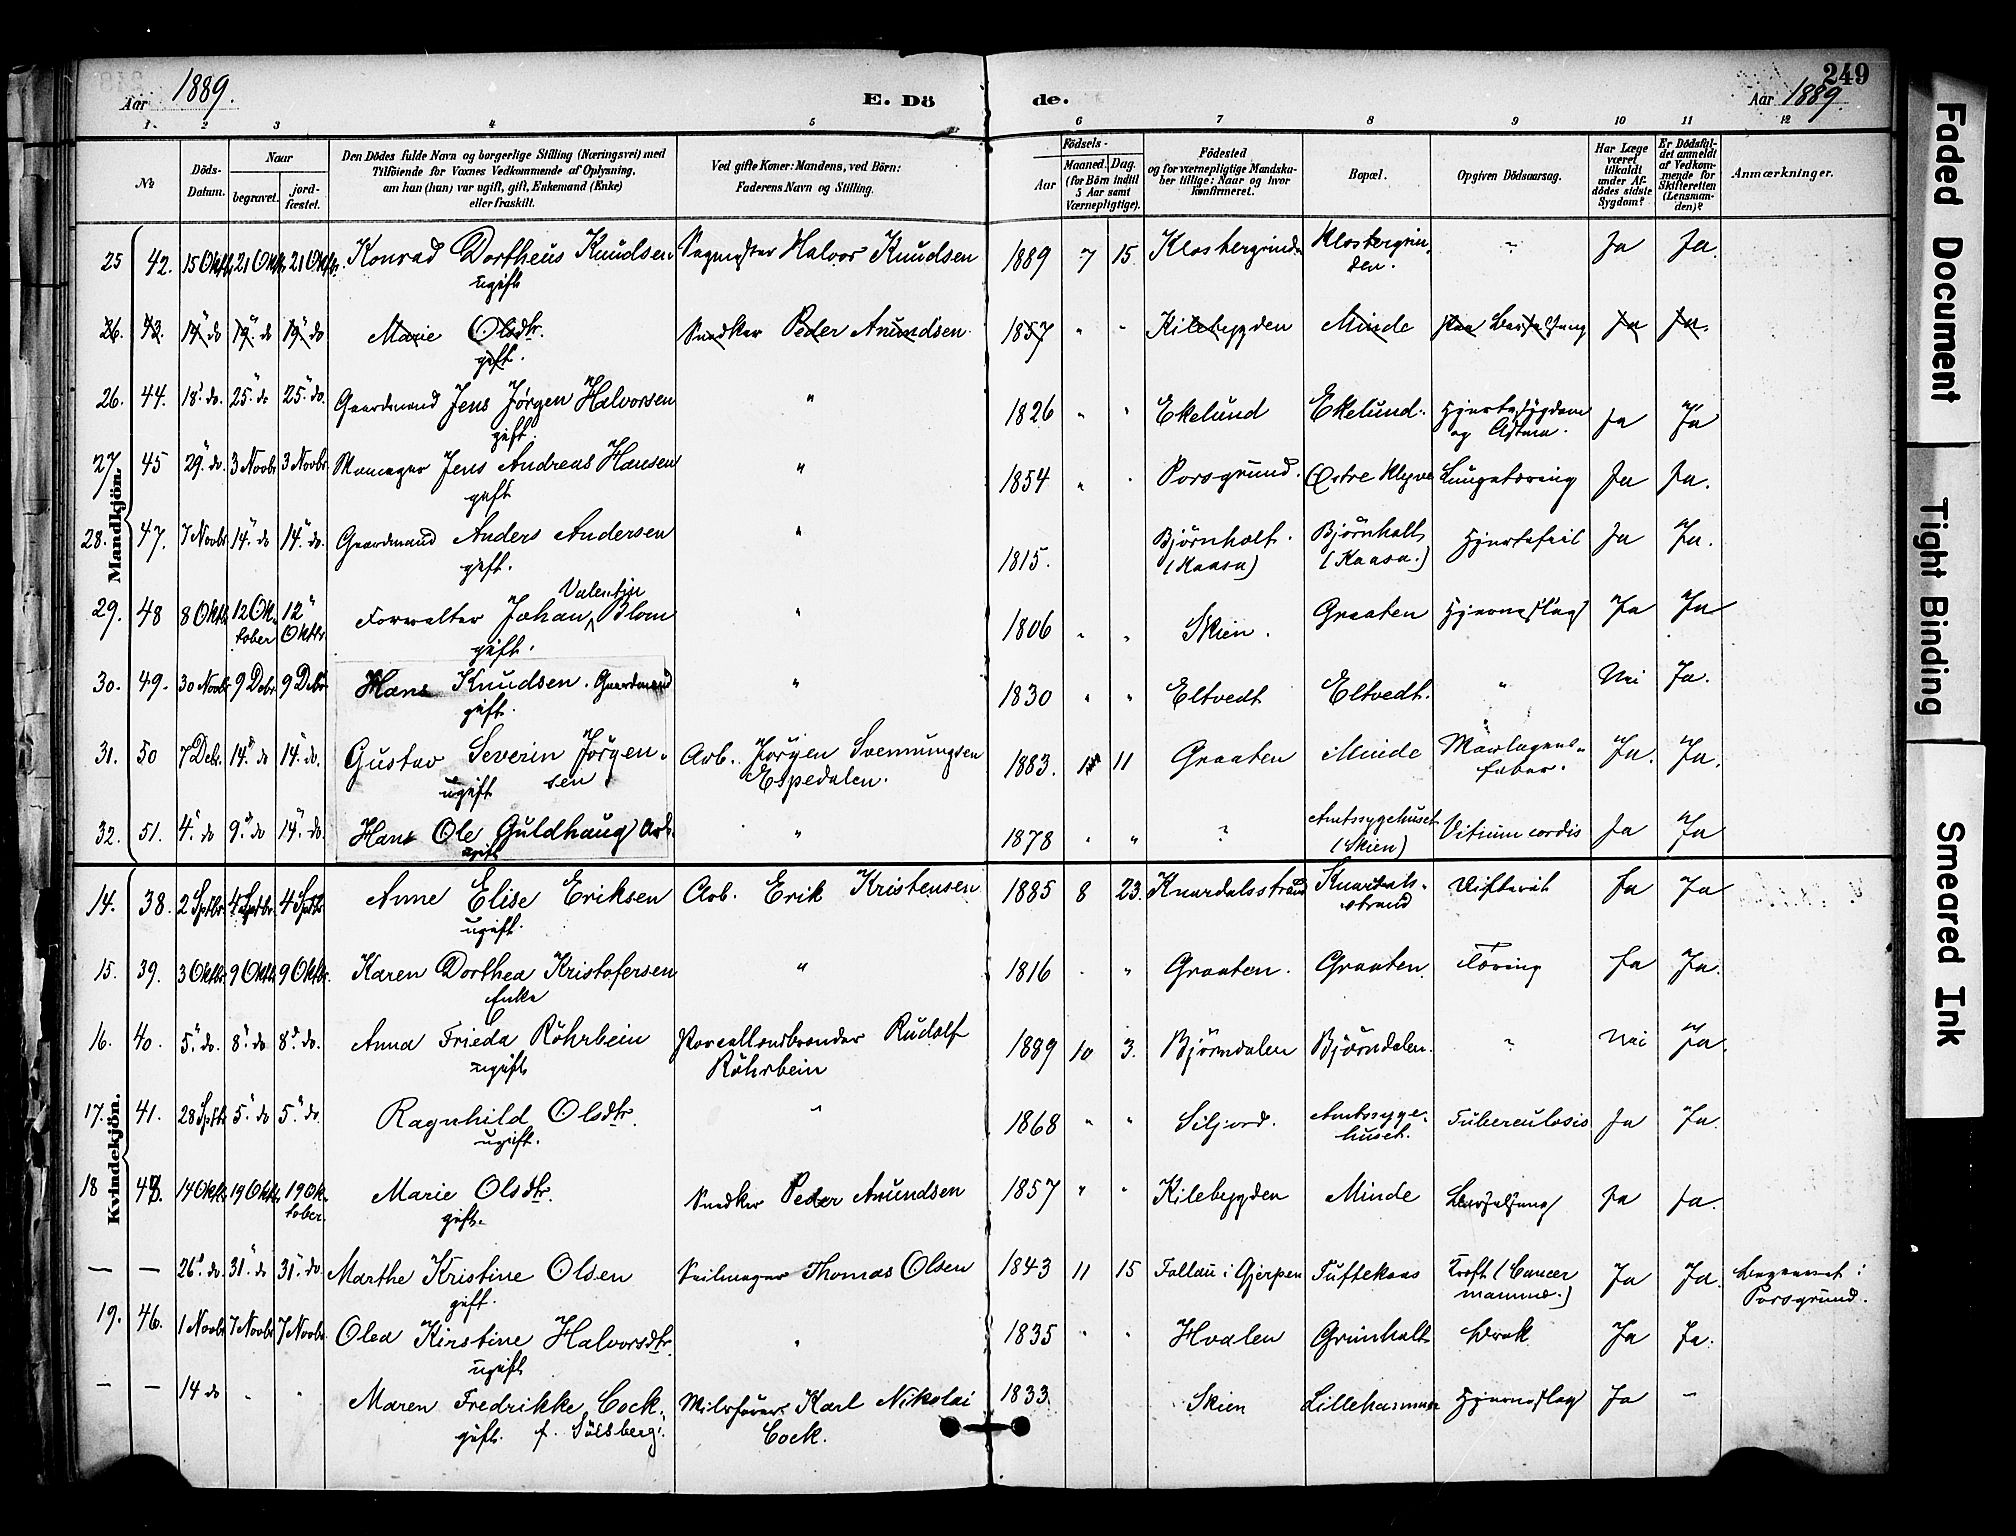 249
Aar 1889. E. Dö de. Aar 1889.
1. 2 3 4 5 6 7 8 9 10 11 12
№ Döds-Datum. Naar begravet. jord-fæstet. Den Dödes fulde Navn og borgerlige Stilling (Næringsvei) med Tilföiende for Voxnes Vedkommende af Oplysning, om han (hun) var ugift, gift, Enkemand (Enke) eller fraskilt. Ved gifte Koner: Mandens, ved Börn: Faderens Navn og Stilling. Födsels- Aar Maaned. Dag. (for Börn indtil 5 Aar samt Værnepligtige). Födested og for værnepligtige Mandskaber tillige: Naar og hvor konfirmeret. Bopæl. Opgiven Dödsaarsag. Har Læge været tilkaldt under Afdödes sidste Sygdom? Er Dödsfaldet anmeldt af Vedkommende for Skifteretten (Lensmanden)? Anmærkninger.
Mandkjön.
25 42. 15 Oktbr 21 Oktbr 21 Oktbr. Konrad Dortheus Knudsen Sagmester Halvor Knudsen 1889 7 15. Klostergrinden Klostergrin-
ugift den. " Ja Ja.
26. 43. 14" do 19" do 19" do Marie Olsdtr. Snedker Peder Amundsen 1857 " " Kilebygden Minde Barselseng Ja Ja.
gift.
26. 44. 18" do. 25" do 25" do. Gaardmand Jens Jörgen Halvorsen " 1826 " " Ekelund Ekelund. Hjertesygdom
gift. og Astma. Ja Ja
27. 45 29" do. 3 Novbr 3 Novbr. Jens Andreas Hansen " 1854 " " Porsgrund. Østre Klyve Lungetæring Ja Ja.
gift
28. 47. 7 Novbr 14" do 14" do. Gaardmand Anders Andersen " 1815. Björnholt. Björnholt Hjertefeil Ja Ja.
gift. (Kaasa) (Kaasa.)
29. 48 8 Oktbr 12 Ok- 12" Valentin
tober Oktbr Forvalter Johan Blom " 1806 " " Skien. Graaten Hjerneslag Ja Ja
gift.
30. 49. 30 Novbr 9 Debr 9 Debr Hans Knudsen. Gaardmand " 1830 " " Eltvedt Eltvedt. " Nei Ja.
gift.
31. 50 7 Debr. 14" do 14" do. Gustav Severin Jörgen- Arb. Jörgen Svennungsen 1883. 11 Graaten Minde Ja. Ja.
ugift sen Espedalen.
32. 51. 4" do 9" do 14" do. Hans Ole Guldhaug Arb. " 1878 " " ? Amtssygehuset Vitium cordis Ja Ja
ugift (Skien)
Kvindekjön.
14. 38. 2 Septbr 4 Septbr 4 Septbr Anne Elise Eriksen Arb. Erik Kristensen 1885 8 23. Knardalsstrand Knardals- Difterit Ja Ja
ugift. strand
15. 39. 3 Oktbr 9 Oktbr 9 Oktbr. Karen Dorthea Kristofersen " 1816 " " Graaten. Graaten. Tæring Ja Ja.
Enke
16. 40. 5" do. 8" do 8" do. Anna Frieda Röhrbein Porcellændbrænder Rudolf 1889 10 3. Björndalen Björndalen. " Nei Ja.
ugift Röhrbein
17. 41. 28 Septbr 5" do 5" do Ragnhild Olsdtr. " 1868 " " Siljord. Amtssyge- Tuberculosis Ja Ja.
ugift. huset.
18 43. 14 Oktbr. 19 Oktbr. 19 Ok- Marie Olsdtr. Snedker Peder Amundsen 1857 " " Kilebygden Minde Barselseng Ja Ja.
tober. gift.
— — 26" do. 31" do 31" do. Marthe Kristine Olsen Seilmager Thomas Olsen 1843 11 15 Follau i Gjerpen Tuftekaas Kræft (Cancer Ja Ja. Begravet i
gift. mammæ.) Porsgrund.
19. 46. 1 Novbr 7 Novbr 7 Novbr. Olea Kirstine Halvorsdtr. " 1835 " " Hvalen Grünholt Brok Ja Ja.
ugift
— — 14 do " " Maren Fredrikke Cock. Karl Nikolai 1833. Skien Lillehammer Hjerneslag Ja —
gift. f. Sölsberg. Cock.
Faded Document
Tight Binding
Smeared Ink